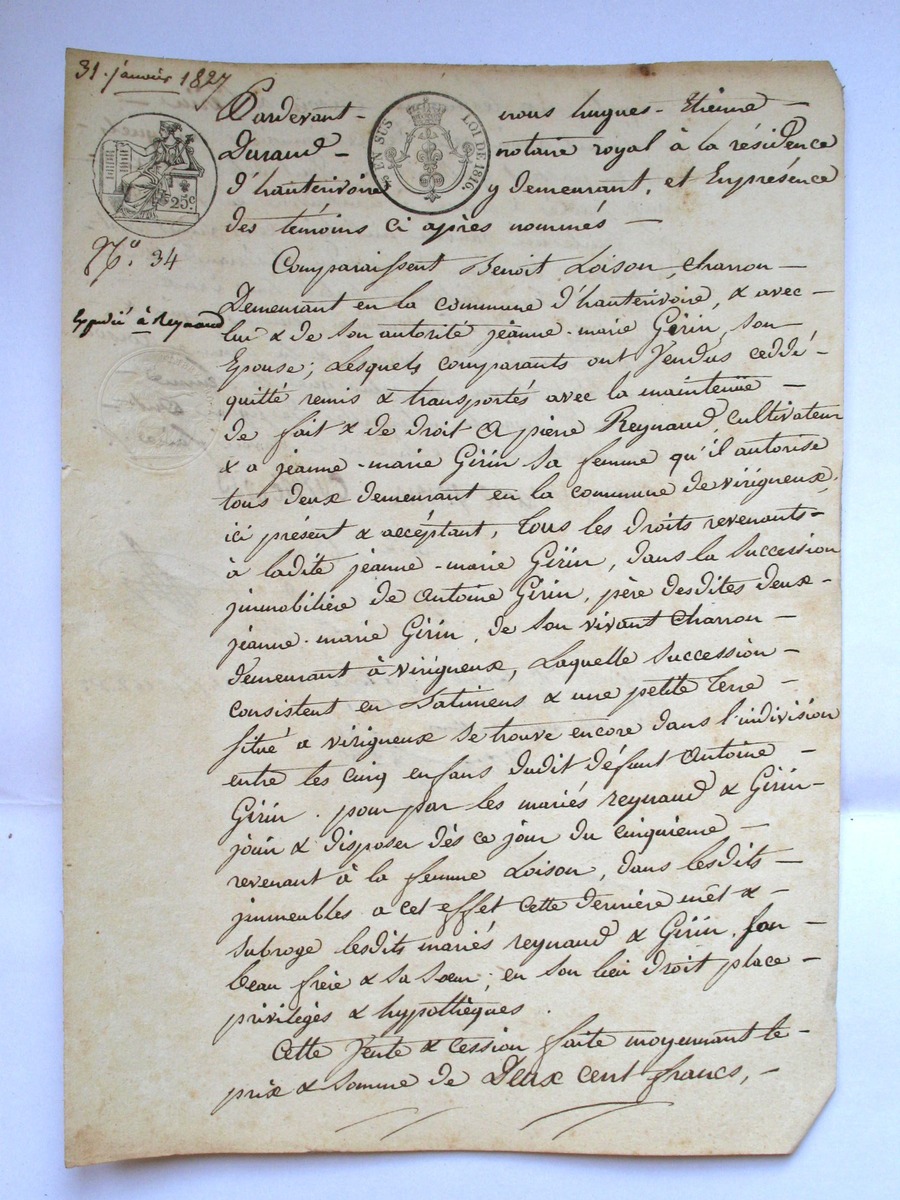 31. janvier 1827
Pardevant - nous hugues - Etienne -
Durand - notaire royal à la résidence
d'hauterivoire y demeurant, et En présence
des témoins Ci après nommés -
EN SUS LOI DE 1816.
25c
No. 34
Expédié à Reynaud
Comparaissent Benoit Loison, charron -
Demeurant en la commune d'hauterivoire, & avec -
lui & de son autorité jeanne-marie Girin, son
Epouse; Lesquels comparants ont Vendus ceddé -
quitté remis & transportés avec la maintenüe -
de fait & de droit a pierre Reynaud, cultivateur
& a jeanne-marie Girin sa femme qu'il autorise
tous deux demeurant en la commune de virigneux,
ici présent & accéptant, tous les droits revenants -
à ladite jeanne-marie Girin, dans la Succession
jmmobilière de Antoine Girin, père desdites deux -
jeanne-marie Girin, de son vivant Charron -
demeurant à virigneux, Laquelle Succession -
consistent en batimens & une petite terre -
situé a virigneux se trouve encore dans l'indivision
entre les cinq enfans dudit défunt Antoine -
Girin. pour par les mariés reynaud & Girin -
jouir & disposer dès ce jour du cinquieme -
revenant à la femme Loison, dans lesdits -
jmmeubles a cet effet cette dernière mêt & -
subroge lesdits mariés reynaud & Girin, son -
beau frère & sa sœur, en son lieu droit place -
privilèges & hypothèques.
Cette Vente & cession faite moyennant le -
prix & somme de Deux cent francs, -